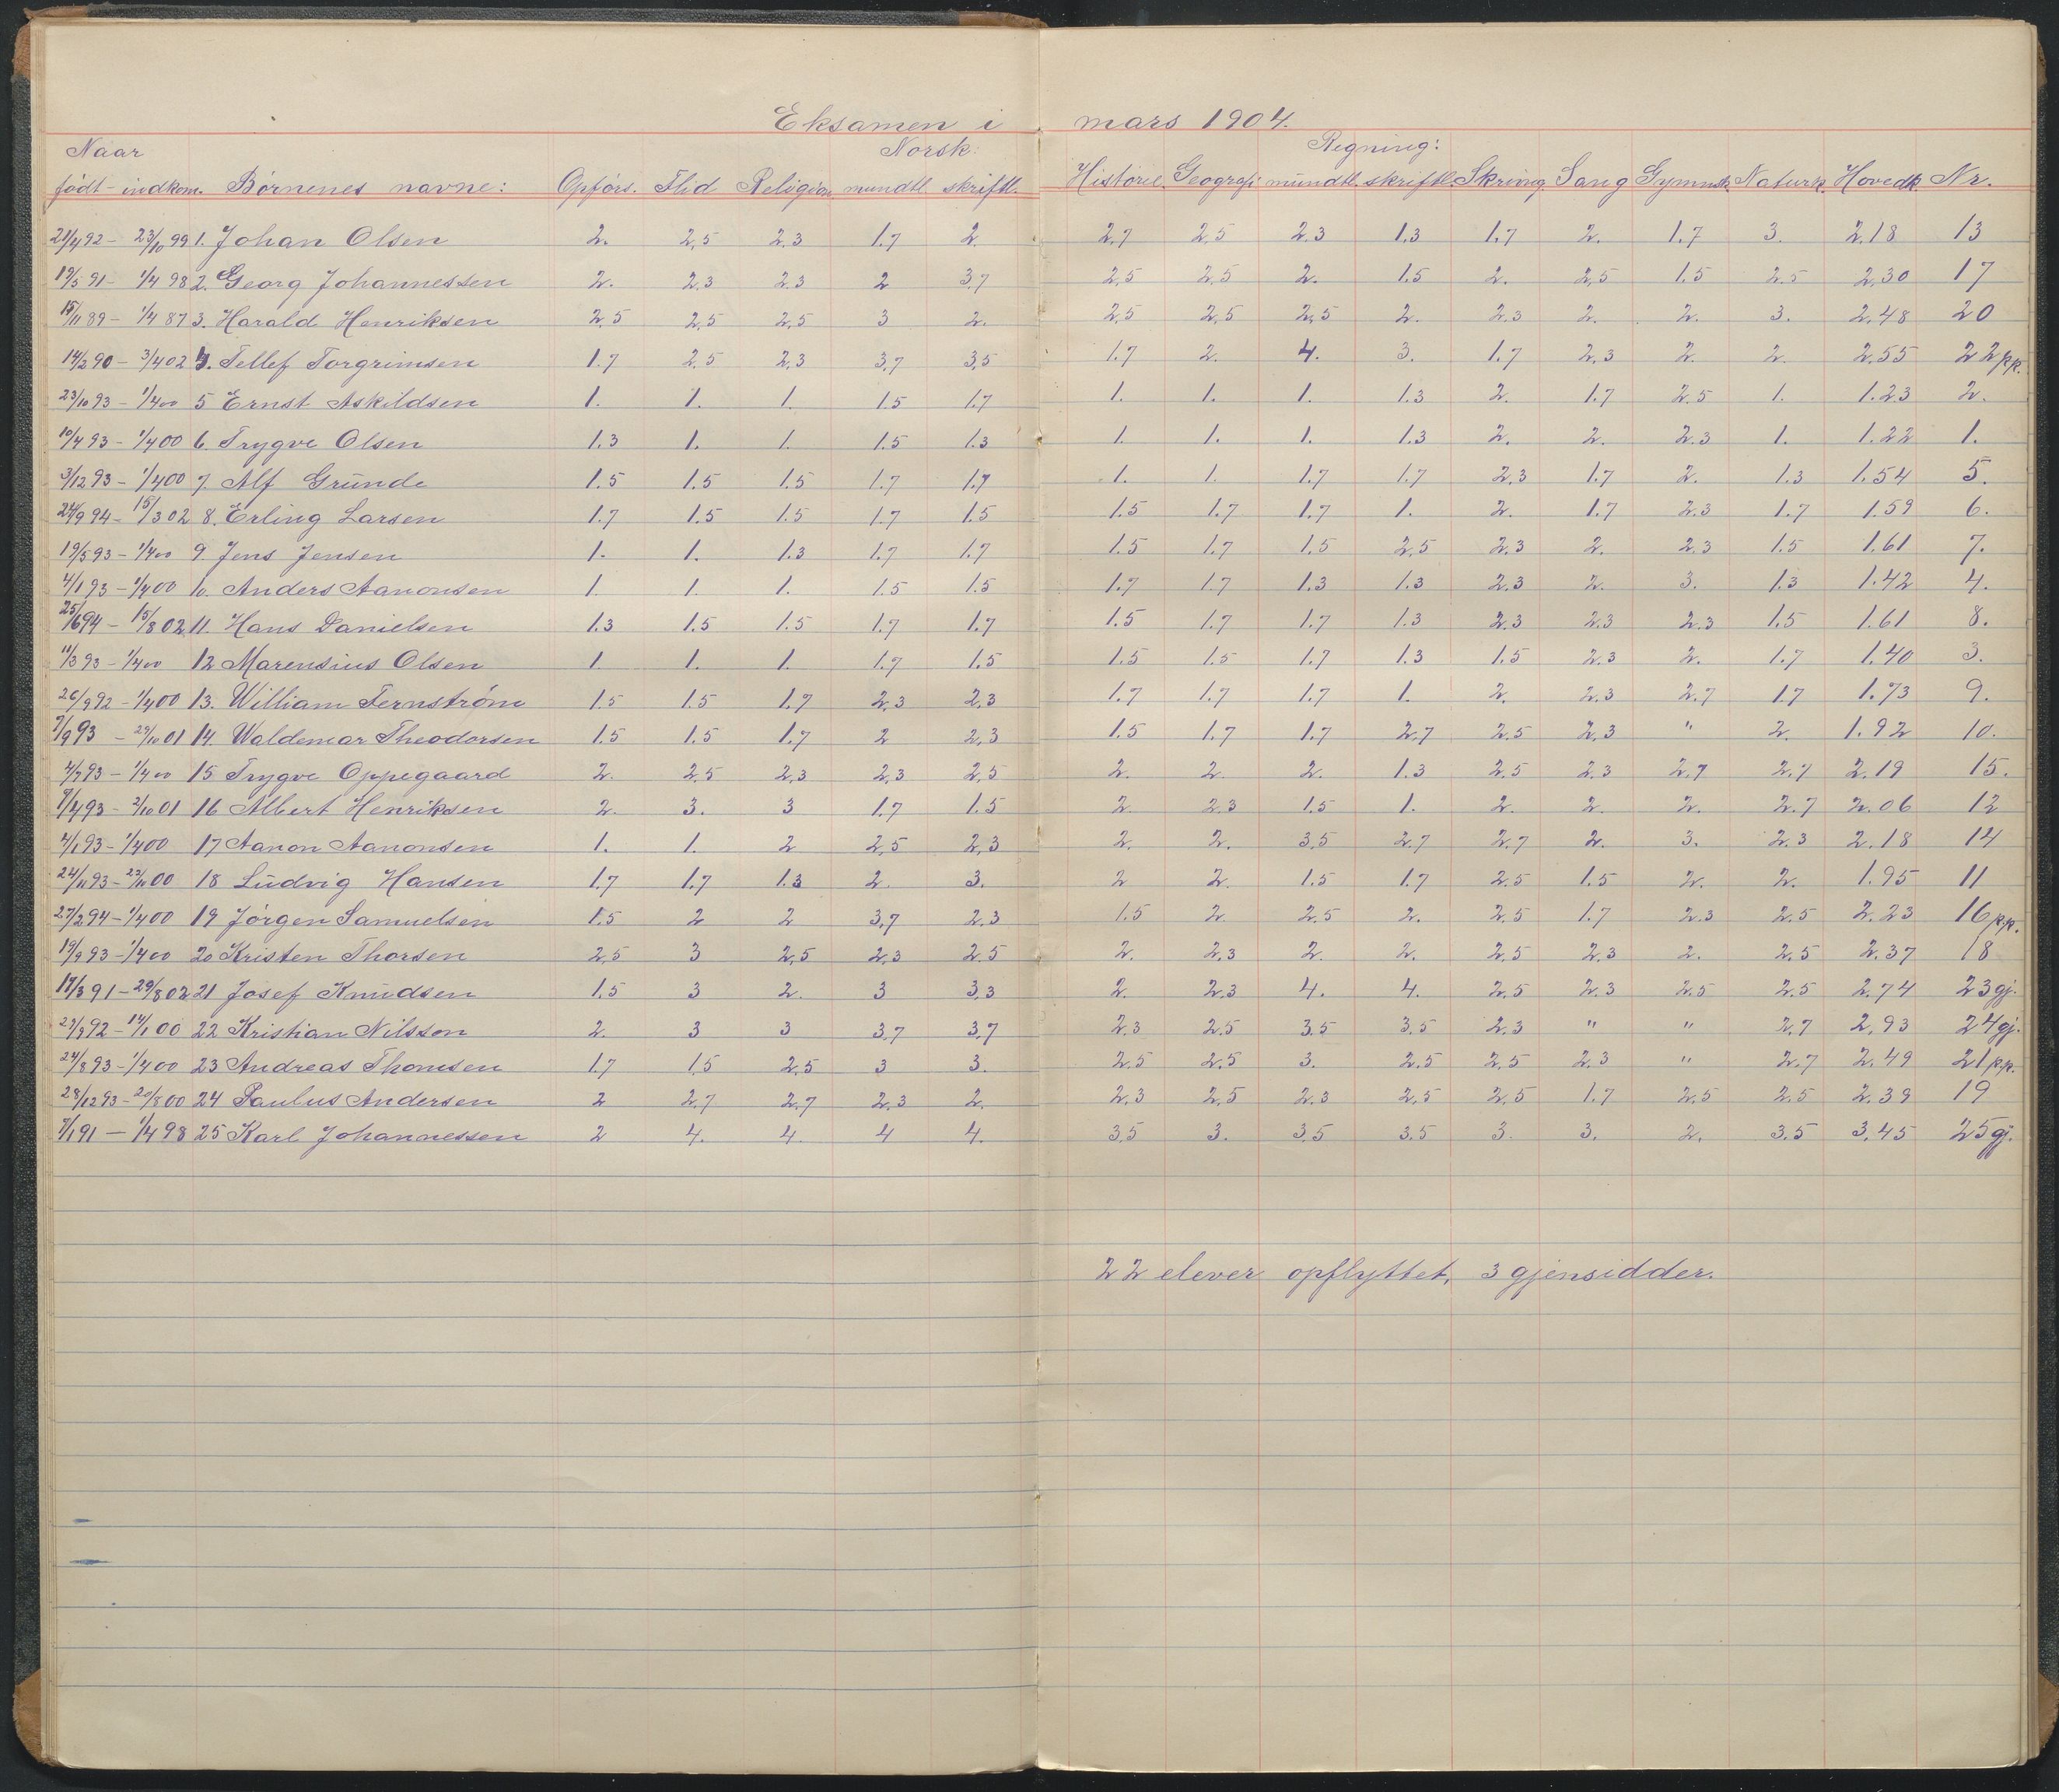 Eksamen i mars 1904.
Naar Norsk: Regning:
födt - indkom. Börnenes navne: Opförs. Flid Religion mundtl. skriftl. Historie. Geografi mundtl. skriftl. Skrivning Sang Gymnstk. Naturk. Hovedk. Nr.
21/4 92 - 23/10 99 1. Johan Olsen 2. 2,5 2,3 1.7 2 2,7 2,5 2.3 1.3 1.7 2. 1.7 3. 2.18 13
19/5 91 - 1/4 98 2. Georg Johannessen 2. 2.3 2.3 2 3,7 2,5 2,5 2. 1.5 2. 2,5 1.5 2.5 2,30 17
15/11 89 - 1/4 87 3. Harald Henriksen 2,5 2,5 2,5 3 2. 2,5 2,5 2,5 2. 2.3 2. 2. 3. 2.48 20
14/2 90 - 3/4 02 4. Tellef Torgrimsen 1.7 2.5 2,3 3,7 3,5 1.7 2. 4. 3. 1.7 2.3 2. 2. 2.55 22 pp.
23/10 93 - 1/4 00 5 Ernst Askildsen 1. 1. 1. 1.5 1.7 1. 1. 1. 1.3 2. 1.7 2.5 1. 1.23 2.
10/4 93 - 1/4 00 6. Trygve Olsen 1.3 1. 1. 1.5 1.3 1. 1. 1. 1.3 2. 2. 2.3 1. 1.22 1.
3/12 93 - 1/4 00 7. Alf Grunde 1.5 1.5 1.5 1.7 1.7 1. 1. 1.7 1.7 2.3 1.7 2. 1.3 1.54 5.
24/9 94 - 15/3 02 8. Erling Larsen 1.7 1.5 1.5 1.7 1.5 1.5 1.7 1.7 1. 2. 1.7 2.3 1.7 1.59 6.
19/5 93 - 1/4 00 9. Jens Jensen 1. 1. 1.3 1.7 1.7 1.5 1.7 1.5 2,5 2.3 2. 2.3 1.5 1.61 7.
4/1 93 - 1/4 00 10. Anders Aanonsen 1. 1. 1. 1.5 1.5 1.7 1.7 1.3 1.3 2.3 2. 3. 1.3 1.42 4.
25/6 94 - 15/8 02 11. Hans Danielsen 1.3 1.5 1.5 1.7 1.7 1.5 1.7 1.7 1.3 2.3 2.3 2.3 1.5 1.61 8.
11/3 93 - 1/4 00 12 Marensius Olsen 1. 1. 1. 1.7 1.5 1.5 1.5 1.7 1.3 1.5 2.3 2. 1.7 1.40 3.
26/9 92 - 1/4 00 13. William Fernström 1.5 1.5 1.7 2.3 2.3 1.7 1.7 1.7 1. 2. 2.3 2.7 1.7 1.73 9.
7/9 93 - 29/10 01 14. Waldemar Theodorsen 1.5 1.5 1.7 2 2,3 1.5 1.7 1.7 2.7 2.5 2.3 " 2. 1.92 10.
4/7 93 - 1/4 00 15 Trygve Oppegaard 2. 2,5 2,3 2,3 2,5 2. 2. 2. 1.3 2.5 2.3 2.7 2.7 2.19 15.
9/4 93 - 2/10 01 16 Albert Henriksen 2. 3. 3 1.7 1.5 2. 2.3 1.5 1. 2. 2. 2. 2.7 2.06 12
4/1 93 - 1/4 00 17 Aanon Aanonsen 1. 1. 2 2,5 2,3 2. 2. 3.5 2.7 2.7 2. 3. 2.3 2.18 14
24/11 93 - 23/11 00 18 Ludvig Hansen 1.7 1.7 1.3 2. 3. 2 2. 1.5 1.7 2.5 1.5 2. 2. 1.95 11
27/2 94 - 1/4 00 19 Jörgen Samuelsen 1.5 2 2 3,7 2.3 1.5 2. 2.5 2. 2.5 1.7 2.3 2.5 2.23 16 pp.
19/9 93 - 1/4 00 20 Kristen Thorsen 2,5 3 2,5 2,3 2.5 2. 2,3 2. 2. 2,5 2.3 2. 2,5 2.37 18
17/3 91 - 29/8 02 21 Josef Knudsen 1.5 3 2. 3 3,3 2. 2,3 4. 4. 2,5 2.3 2.5 2.5 2.74 23 gj.
23/9 92 - 14/1 00 22 Kristian Nilsson 2. 3 3 3,7 3,7 2.3 2.5 3.5 3.5 2.3 " " 2.7 2,93 24 gj.
24/8 93 - 1/4 00 23 Andreas Thomsen 1.7 1.5 2.5 3 3. 2.5 2.5 3. 2.5 2,5 2.3 " 2.7 2.49 21 pp.
28/12 93 - 20/8 00 24 Paulus Andersen 2 2.7 2.7 2.3 2. 2.3 2.5 2.3 2,5 2.5 1.7 2.5 2.5 2.39 19
7/1 91 - 1/4 98 25 Karl Johannessen 2 4. 4. 4 4. 3.5 3. 3.5 3.5 3. 3. 2. 3.5 3,45 25 gj.
22 elever opflyttet, 3 gjensidder.